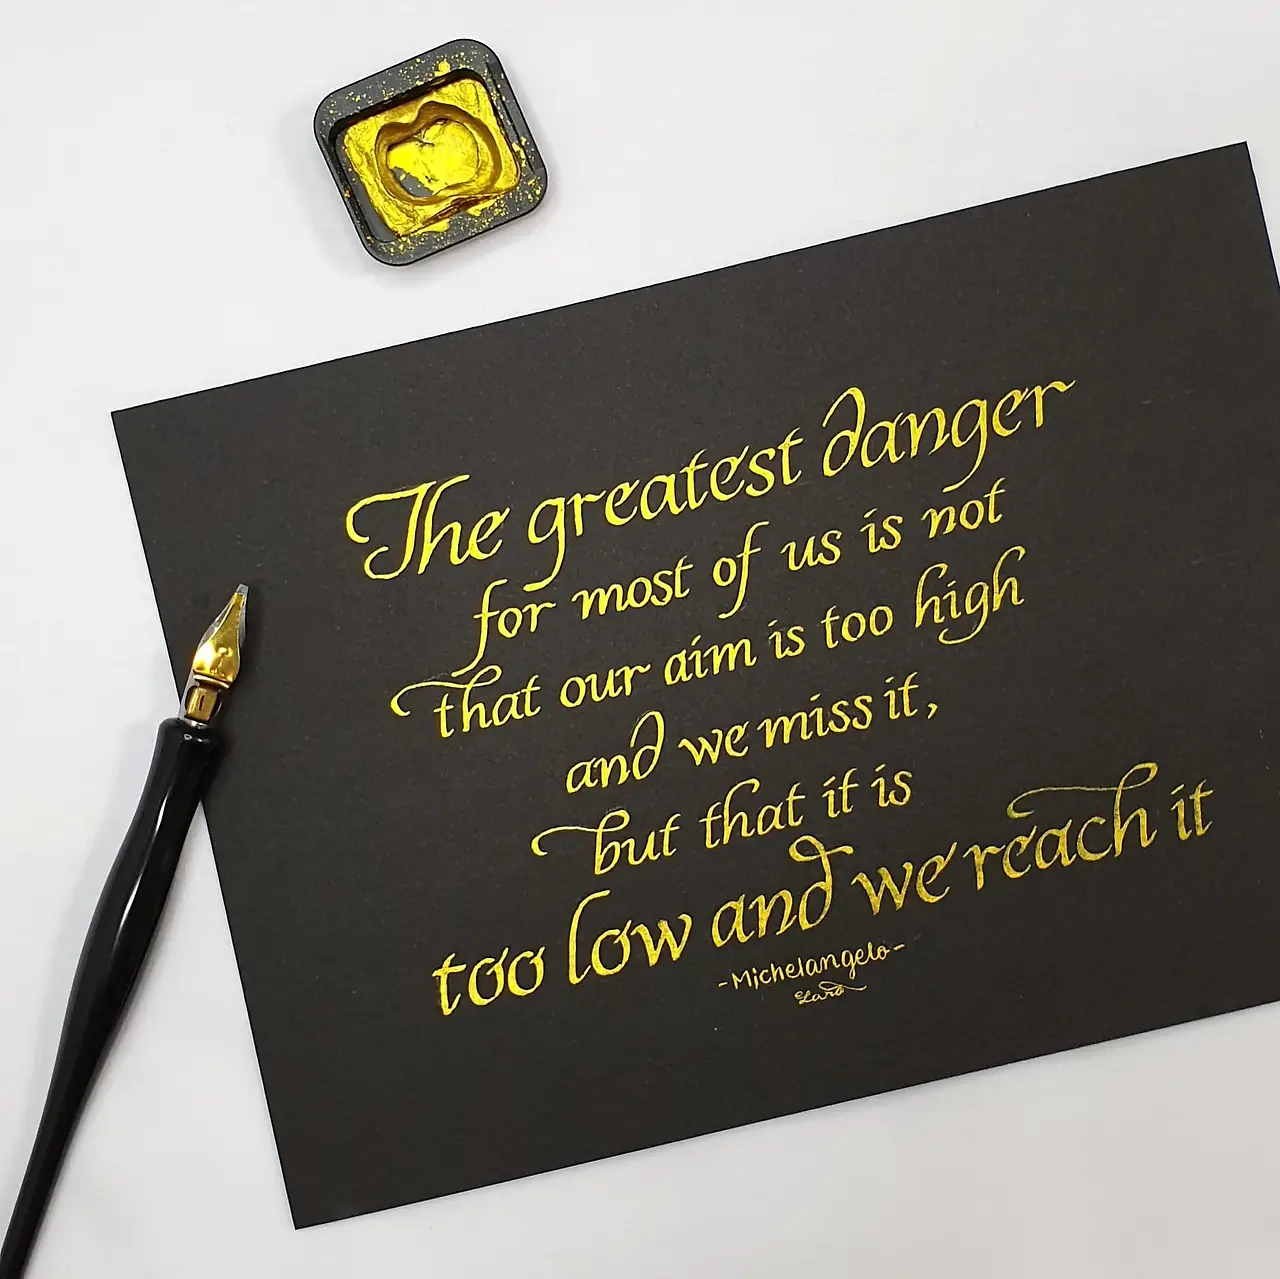 The greatest danger
for most of us is not
that our aim is too high
and we miss it,
but that it is
too low and we reach it
-Michelangelo-
Lara